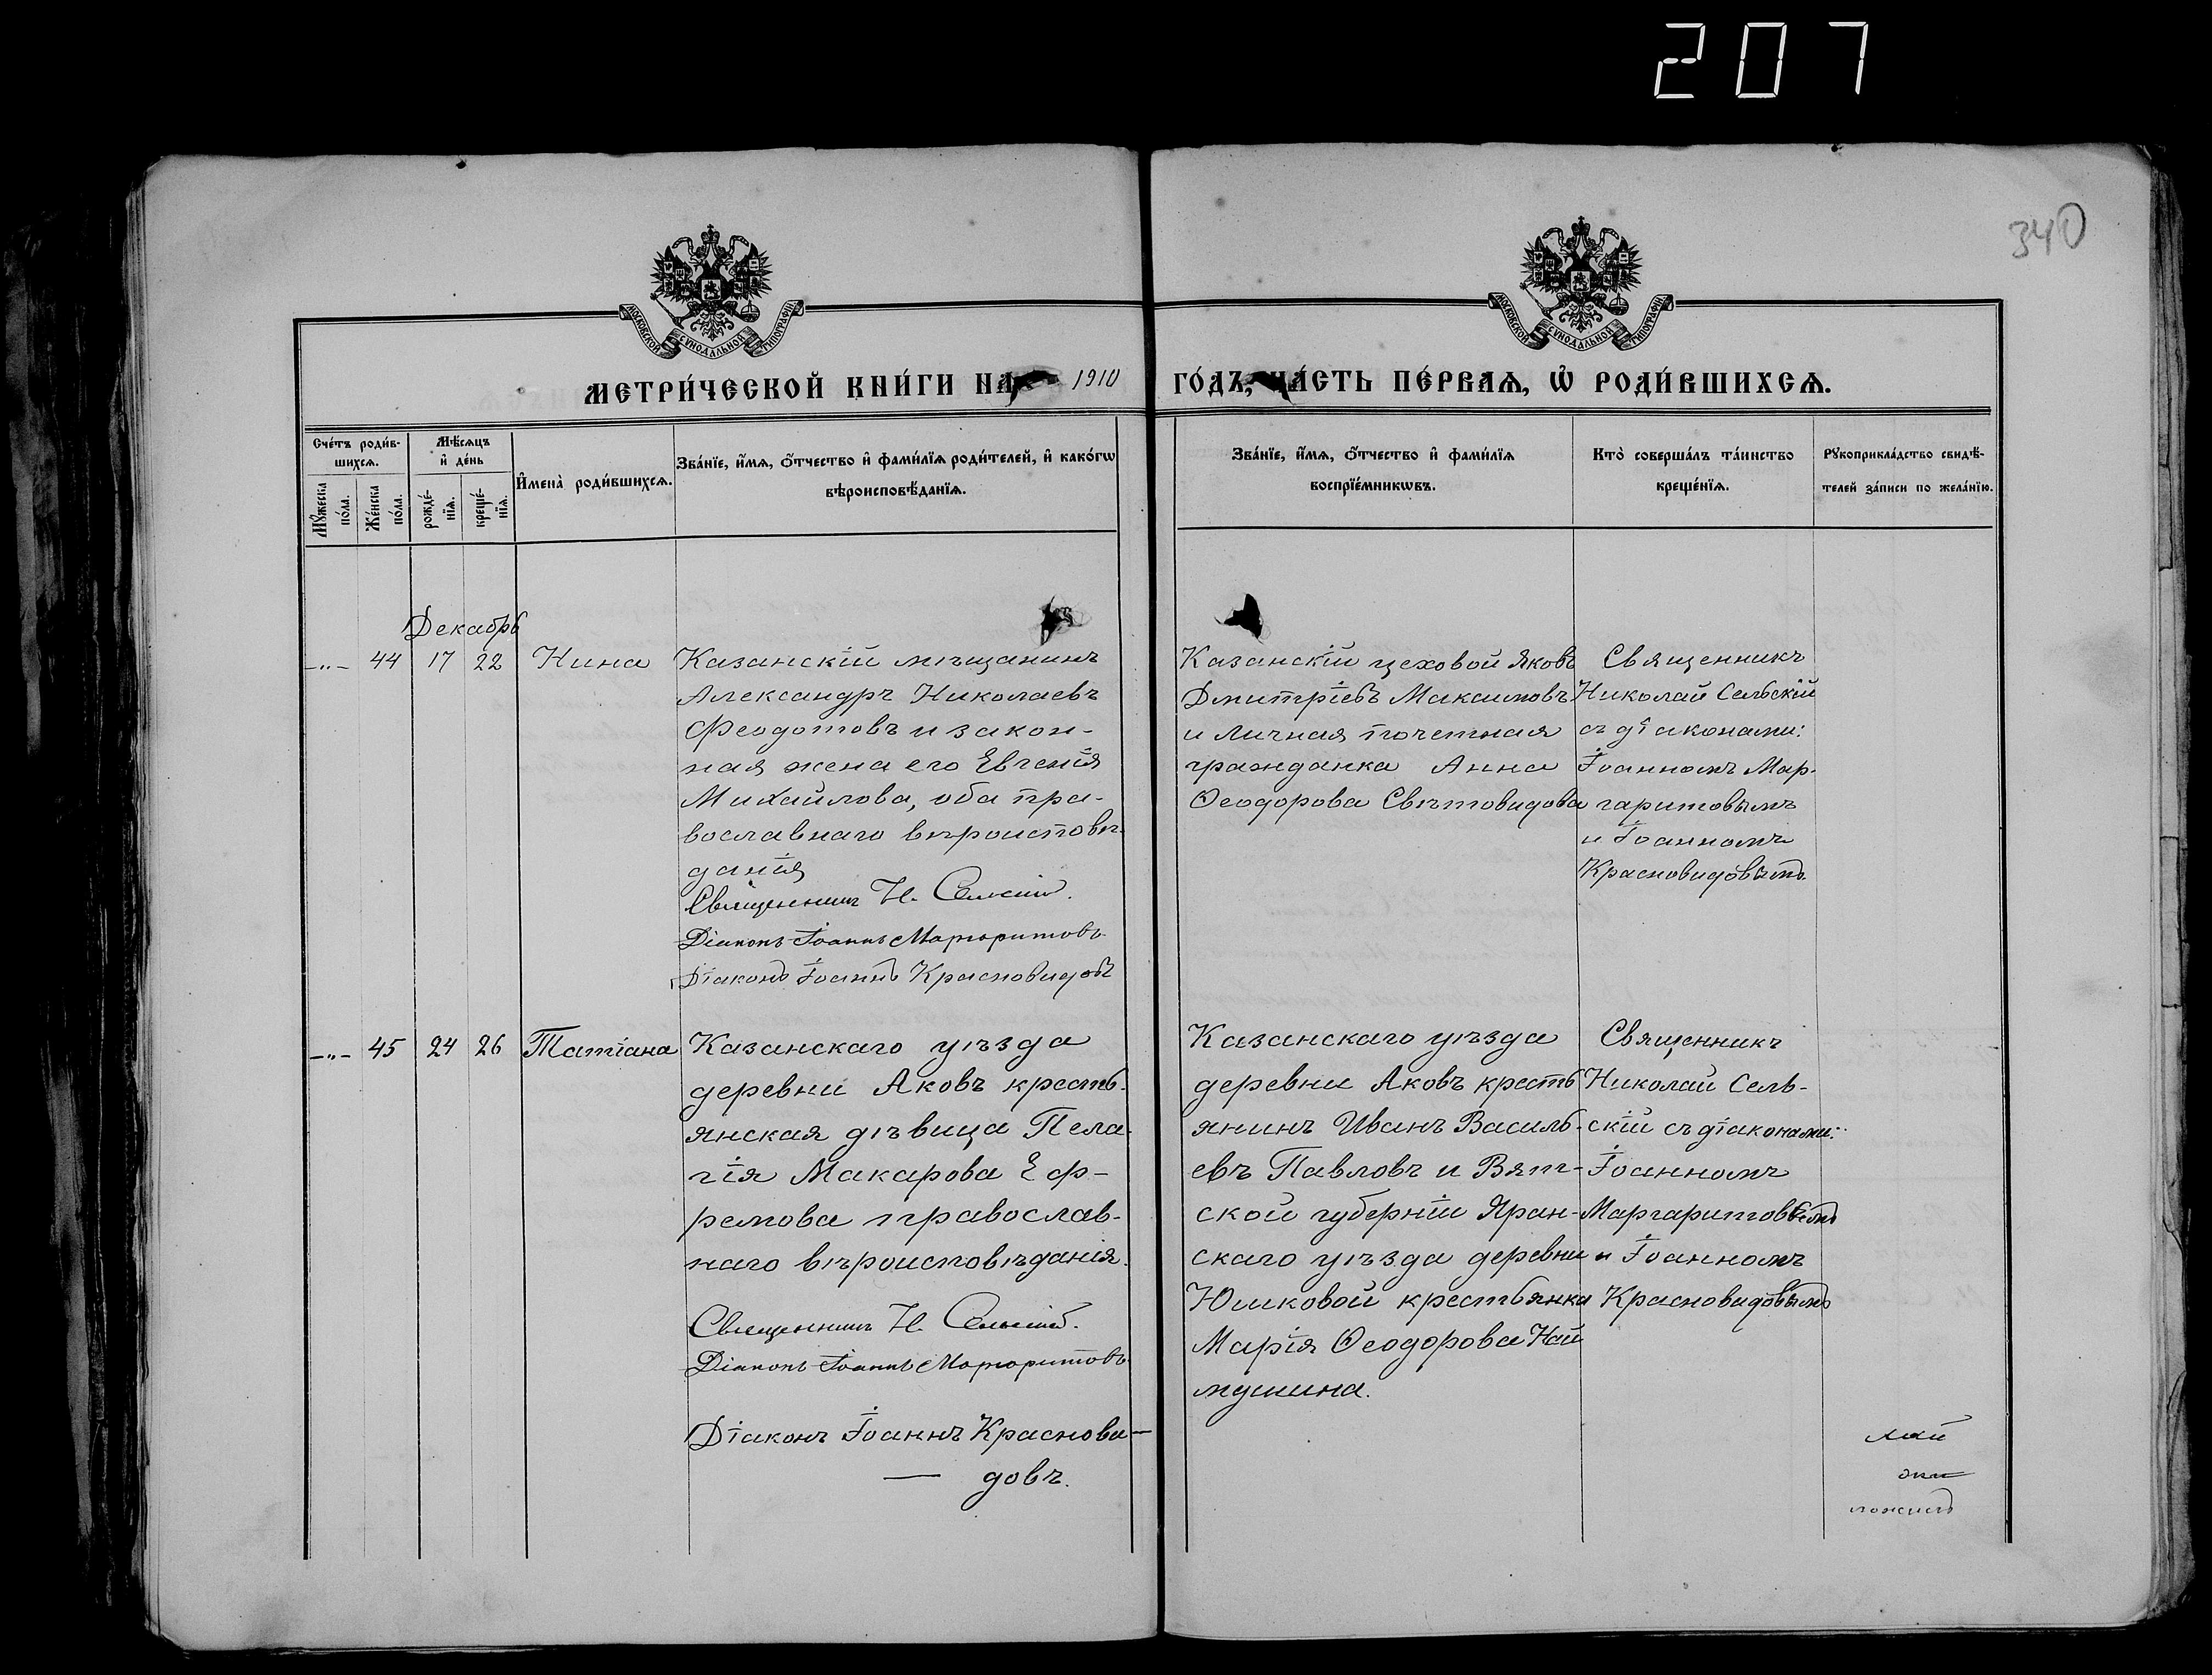 207
340
МОСКОВСКОЙ СѴНОДАЛЬНОЙ ТИПОГРАФІИ
МОСКОВСКОЙ СѴНОДАЛЬНОЙ ТИПОГРАФІИ
МЕТРИ́ЧЕСКОЙ КНИ́ГИ НА 1910 ГО́ДЪ, ЧА́СТЬ ПЕ́РВАѦ, Ѡ҆ РОДИ́ВШИХСѦ.
Сче́тъ роди́в-
шихсѧ.
Мꙋ́жеска по́ла.
Же́нска по́ла.
Мѣ́сѧцъ
и҆ де́нь
рожде́-
нїѧ.
креще́-
нїѧ.
И҆мена̀ роди́вшихсѧ.
Зва́нїе, и҆́мѧ, ѻ҆́тчество и҆ фами́лїѧ роди́телей, и҆ како́гѡ
вѣроисповѣ́данїѧ.
Зва́нїе, и҆́мѧ, ѻ҆́тчество и҆ фами́лїѧ
воспрїе́мникѡвъ.
Кто̀ соверша́лъ та́инство
креще́нїѧ.
Рꙋкоприкла́дство свидѣ́-
телей за́писи по жела́нїю.
Декабрь
-„- 44 17 22 Нина
Казанскій мѣщанинъ
Александръ Николаевъ
Феодотовъ и закон-
ная жена его Евгенія
Михайлова, оба пра-
вославнаго вѣроисповѣ-
данія
Священникъ Н. Сельскій.
Діаконъ Іоаннъ Маргаритовъ
Діаконъ Іоаннъ Красновидовъ
Казанскій цеховой Яковъ
Дмитріевъ Максимовъ
и личная почетная
гражданка Анна
Ѳеодорова Свѣтовидова
Священникъ
Николай Сельскій
съ діаконами:
Іоанномъ Мар-
гаритовымъ
и Іоанномъ
Красновидовымъ.
-„- 45 24 26 Татіана
Казанскаго уѣзда
деревни Аковъ кресть-
янская дѣвица Пела-
гія Макарова Еф-
ремова православ-
наго вѣроисповѣданія.
Священникъ Н. Сельскій.
Діаконъ Іоаннъ Маргаритовъ
Діаконъ Іоаннъ Краснови-
— довъ.
Казанскаго уѣзда
деревни Аковъ кресть
янинъ Иванъ Василь-
евъ Павловъ и Вят-
ской губерніи Яран-
скаго уѣзда деревни
Юшковой крестьянка
Марія Ѳеодорова Най
мушина.
Священникъ
Николай Сель-
скій съ діаконами:
Іоанномъ
Маргаритовымъ
и Іоанномъ
Красновидовымъ